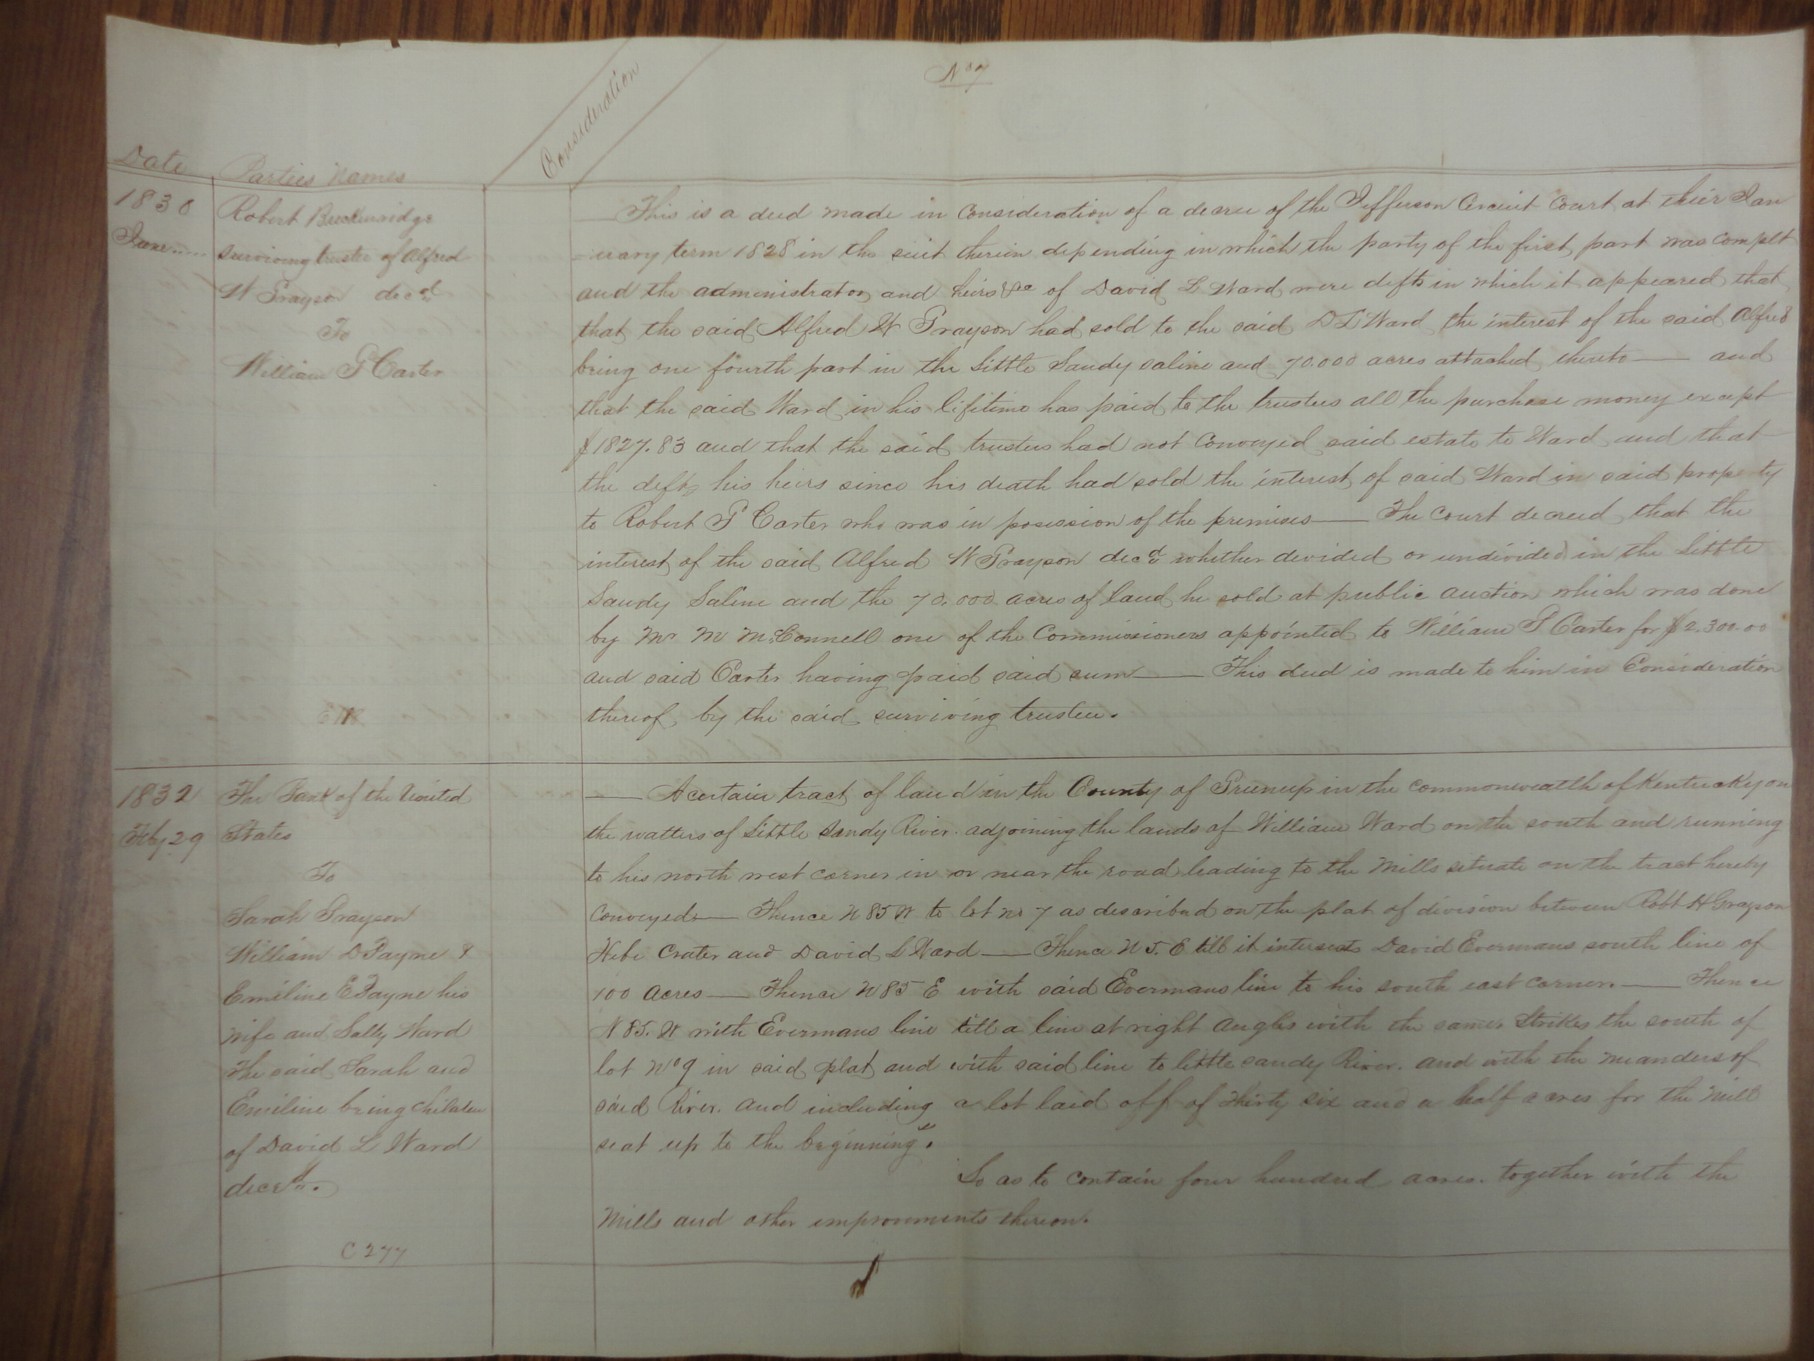 No 7
Consideration
Date
Parties Names
1830
June
Robert Buckenridge
surviving trustee of Alfred
W Grayson decd
To
William G Carter
This is a deed made in consideration of a decree of the Jefferson Circuit Court at their Jan
uary term 1828 in the suit therein depending in which the party of the first part was complt
and the administrator and heirs &c of David L Ward were defts in which it appeared that
that the said Alfred W Grayson had sold to the said D L Ward the interest of the said Alfred
being one fourth part in the Little Sandy saline and 70.000 acres attached thereto — and
that the said Ward in his lifetime has paid to the trustees all the purchase money except
$1827.83 and that the said trustees had not conveyed said estate to Ward and that
the defts his heirs since his death had sold the interest of said Ward in said property
to Robert G Carter who was in posession of the premises — The Court decreed that the
interest of the said Alfred W Grayson decd whether devided or undivided in the Little
Sandy Saline and the 70.000 acres of Land be sold at public auction which was done
by Mr M McConnell one of the Commissioners appointed to William G Carter for $2.300.00
and said Carter having paid said sum — This deed is made to him in Consideration
thereof by the said surviving trustee.
1832
Feby 29
The Bank of the United
States
To
Sarah Grayson
William D Payne &
Emiline E Payne his
wife and Sally Ward
The said Sarah and
Emiline being children
of David L Ward
decsd.
C 277
— A certain tract of land in the County of Greenup in the commonwealth of Kentucky on
the watters of Little Sandy River adjoining the lands of William Ward on the south and running
to his north west corner in or near the road leading to the Mills setuate on the tract hereby
Conveyed — Thence N 85 W to lot No 7 as described on the plat of division between Robt H Grayson
Hebe Crater and David L Ward — Thence N 5. E till it intersects David Evermans south line of
100 acres — Thence N 85 E with said Evermans line to his south east corner. — Thence
N 85. W with Evermans line till a line at right angles with the same Strikes the south of
lot No 9 in said plat and with said line to little sandy River. and with the meanders of
said River. and including a lot laid off of thirty six and a half acres for the Mill
seat up to the beginning".
So as to contain four hundred acres. together with the
Mills and other improvments thereon.